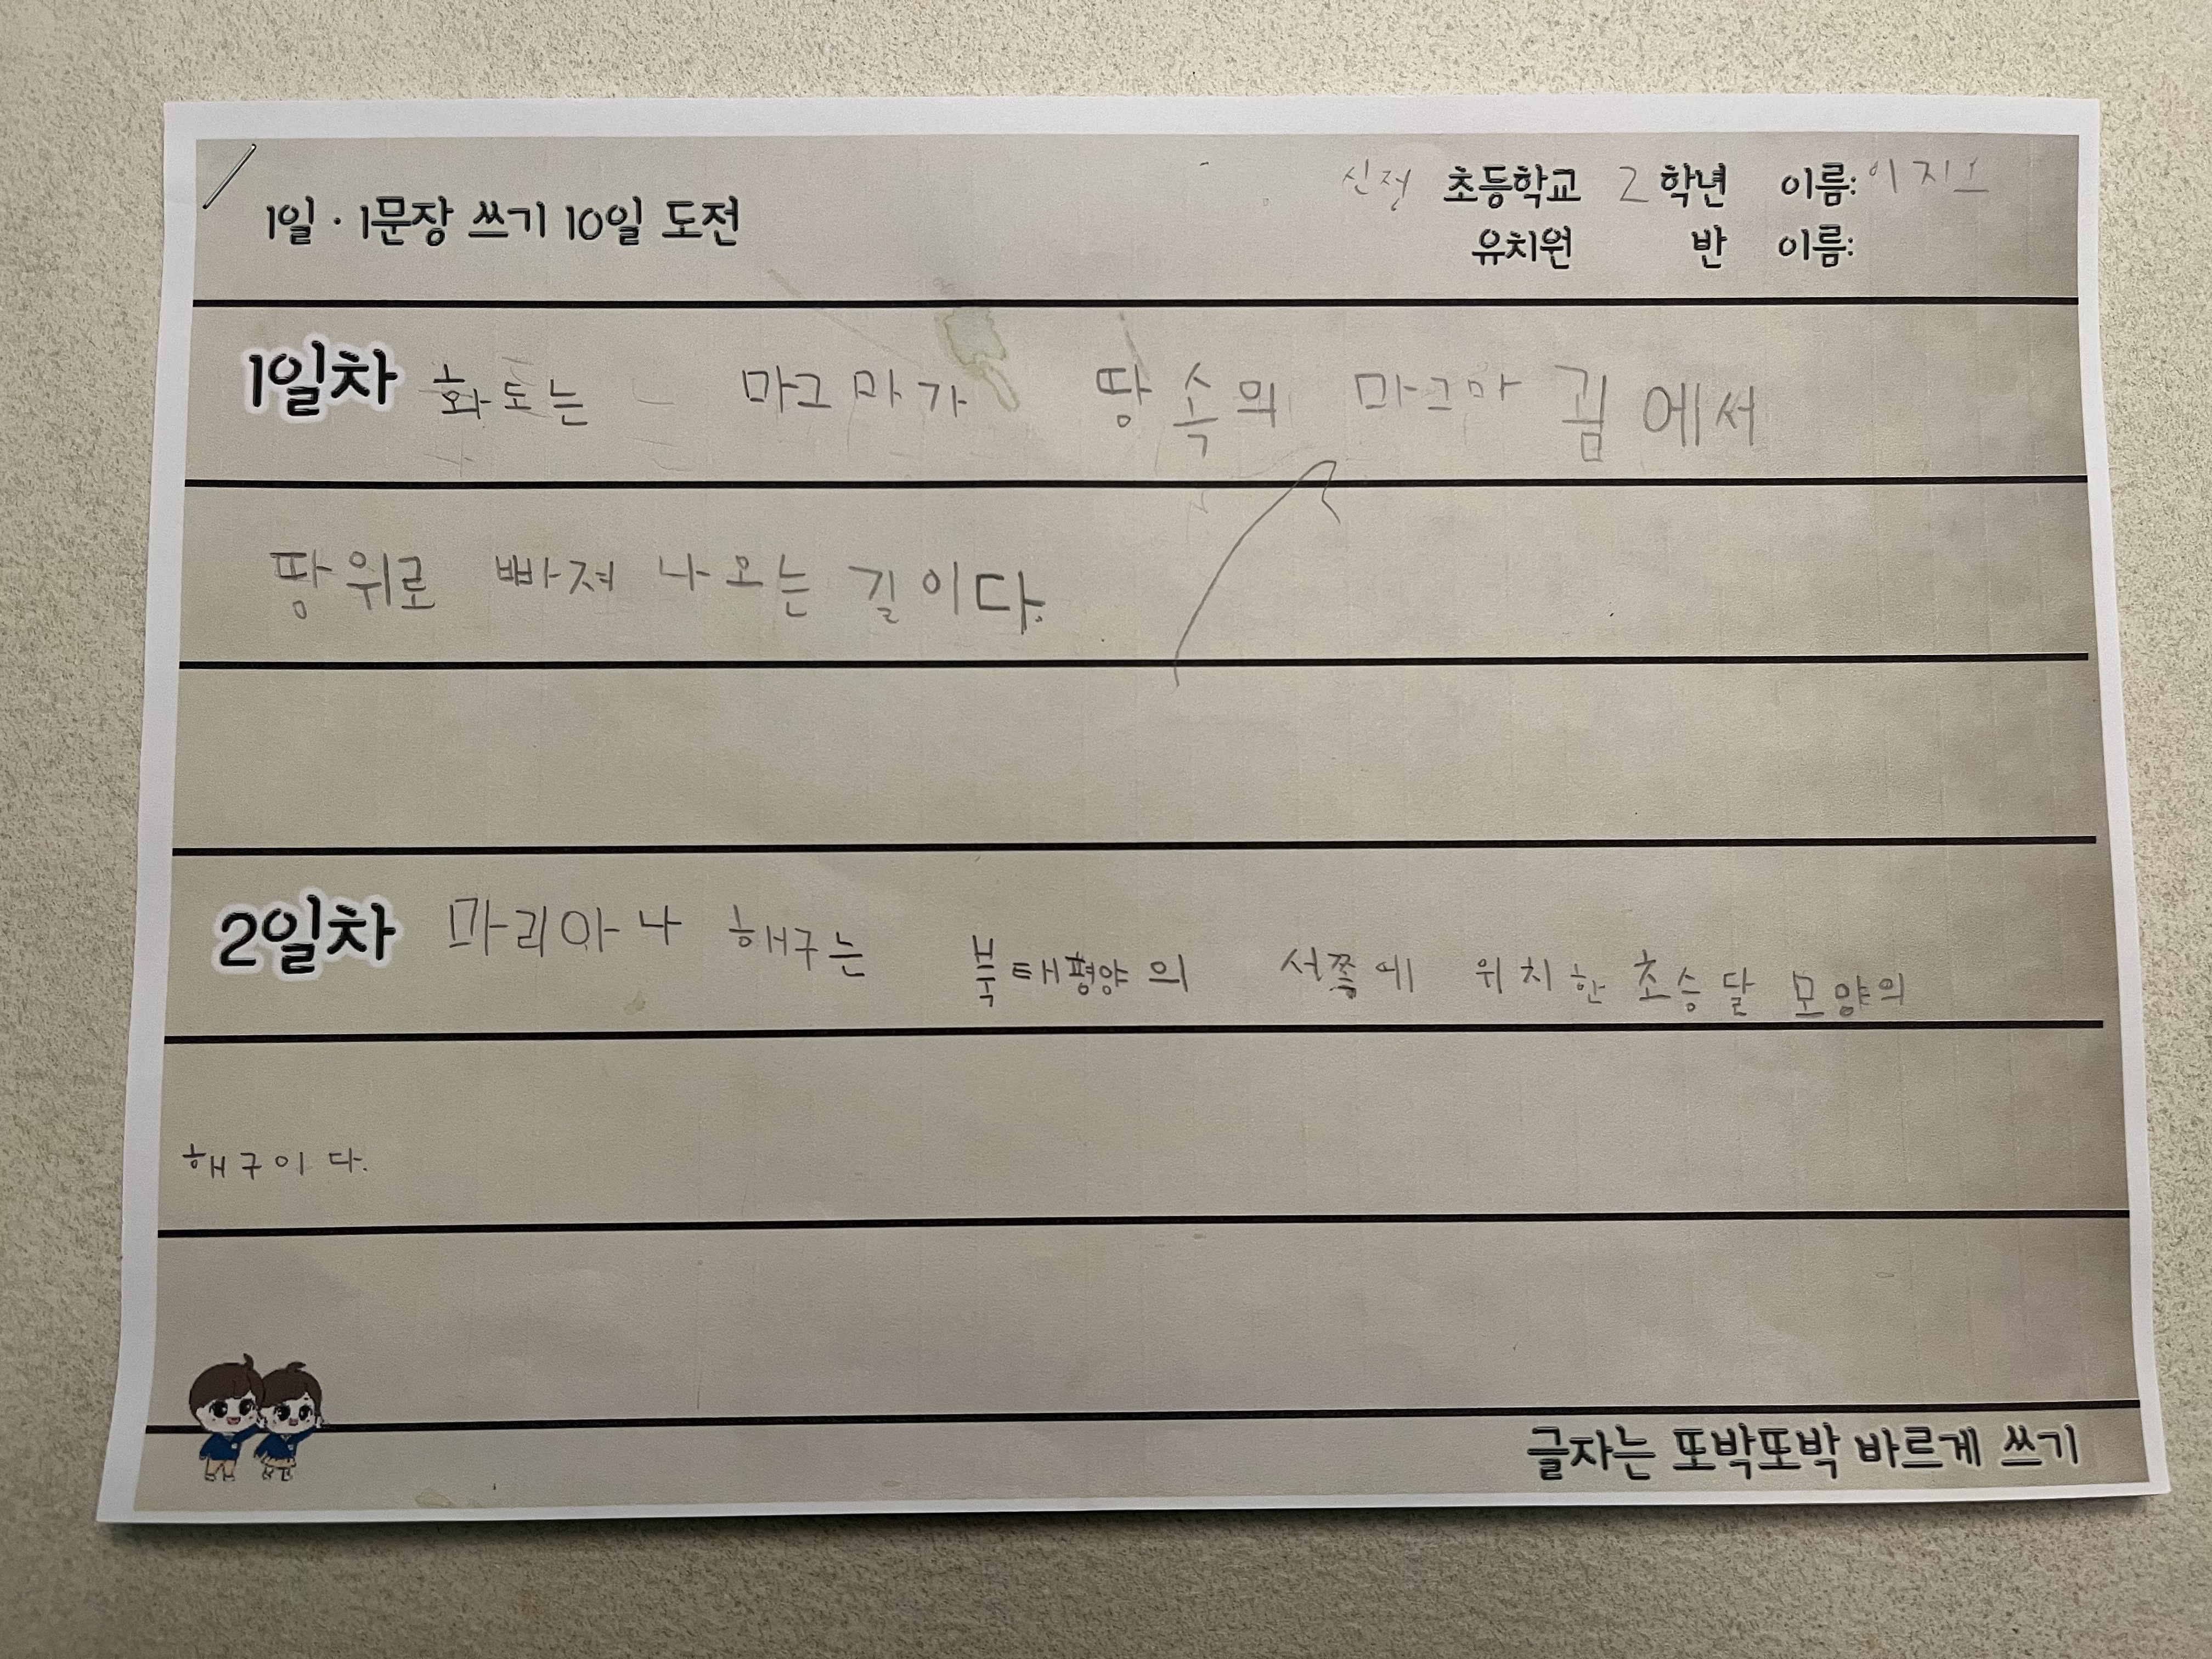 1일·1문장 쓰기 10일 도전
신정 초등학교 2학년 이름:
유치원 반 이름:
1일차 화도는 마그마가 땅속의 마그마 굄에서
땅위로 빠져 나오는 길이다.
2일차 마리아나 해구는 북태평양의 서쪽에 위치한 초승달 모양의
해구이다.
글자는 또박또박 바르게 쓰기